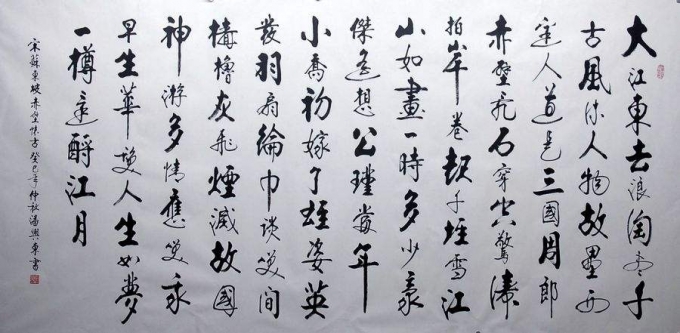 大江東去浪淘盡千
古風流人物故壘西
邊人道是三國周郎
赤壁亂石穿空驚濤
拍岸卷起千堆雪江
山如畫一時多少豪
傑遙想公瑾當年
小喬初嫁了雄姿英
發羽扇綸巾談笑間
檣櫓灰飛煙滅故國
神游多情應笑我
早生華髮人生如夢
一樽還酹江月
宋蘇東坡赤壁懷古癸巳年仲秋湯興東書